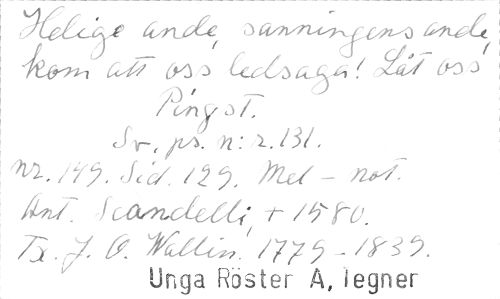 Helige ande, sanningens ande,
kom att oss ledsaga! Låt oss
Pingst.
Sv. ps. n:r. 131.
nr. 149. Sid. 129. Mel - not.
Ant. Scandelli, + 1580.
Tx. J. O. Wallin. 1779-1839.
Unga Röster A, Tegner